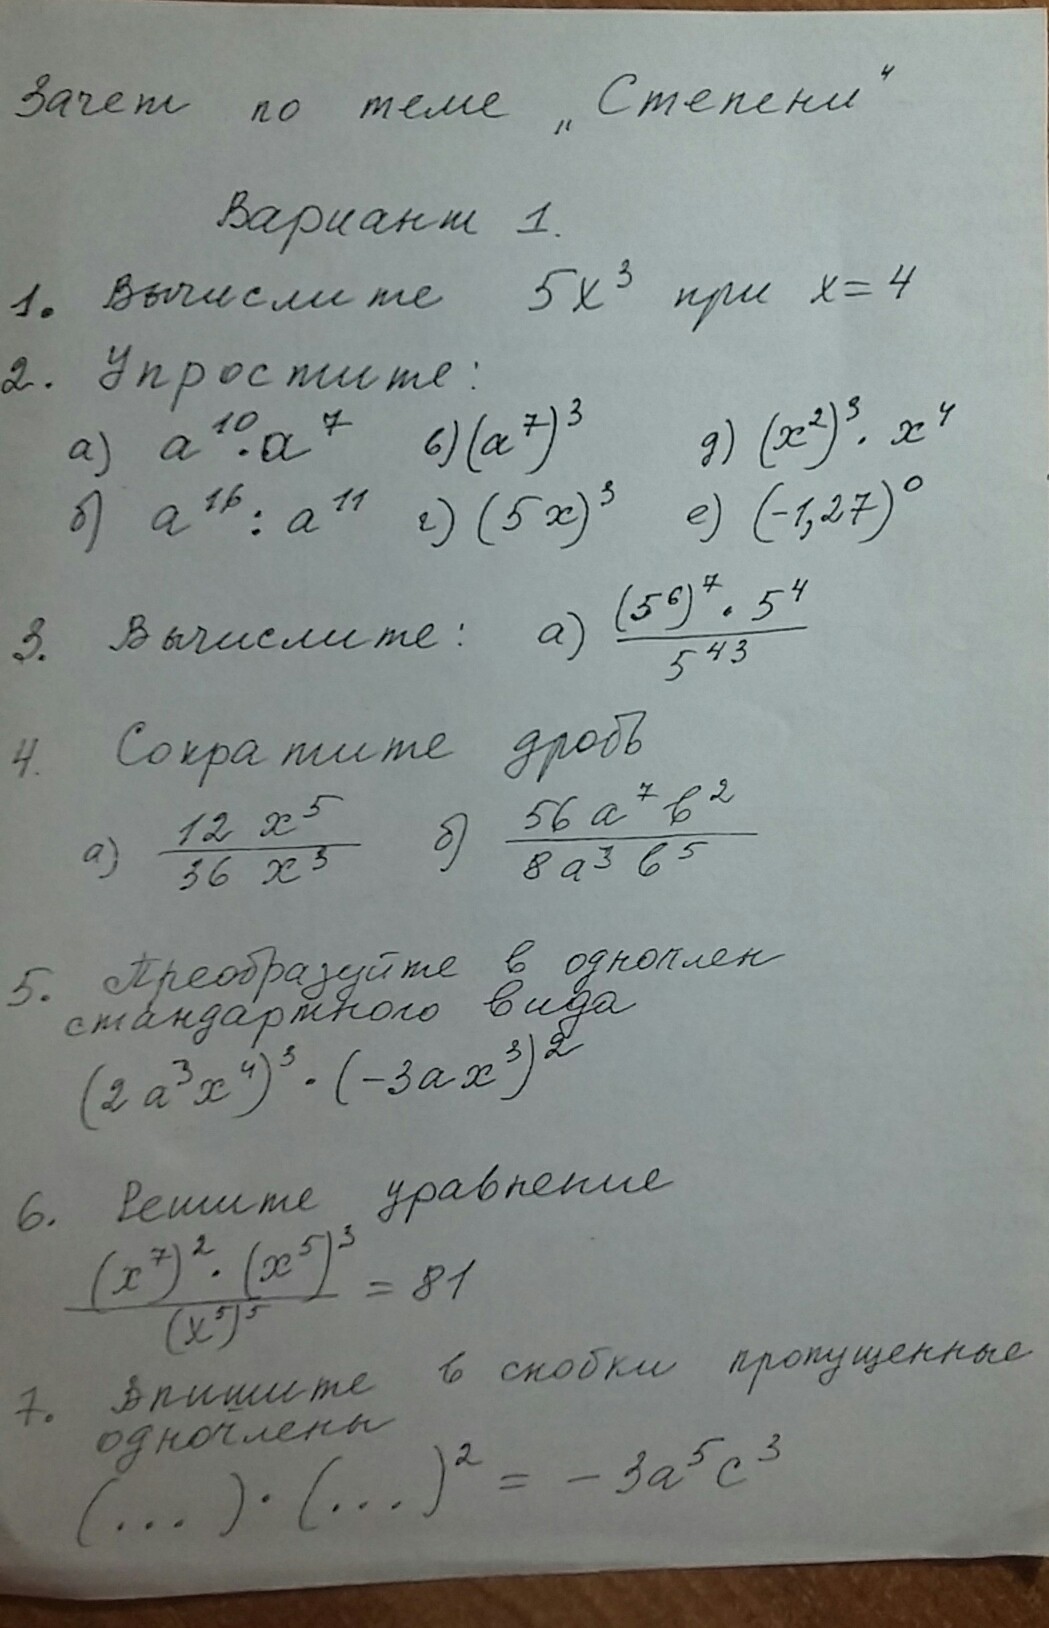 Зачет по теме „Степени"
Вариант 1.
1. Вычислите 5x³ при x=4
2. Упростите:
а) a¹⁰·a⁷ в) (a⁷)³ д) (x²)³·x⁴
б) a¹⁶:a¹¹ г) (5x)³ е) (-1,27)⁰
3. Вычислите: а) ((5⁶)⁷·5⁴)/5⁴³
4. Сократите дробь
а) (12x⁵)/(36x³) б) (56a⁷b²)/(8a³b⁵)
5. Преобразуйте в одночлен
стандартного вида
(2a³x⁴)³·(-3ax³)²
6. Решите уравнение
((x⁷)²·(x⁵)³)/(x⁵)⁵ = 81
7. Впишите в скобки пропущенные
одночлены
(...)·(...)² = -3a⁵c³